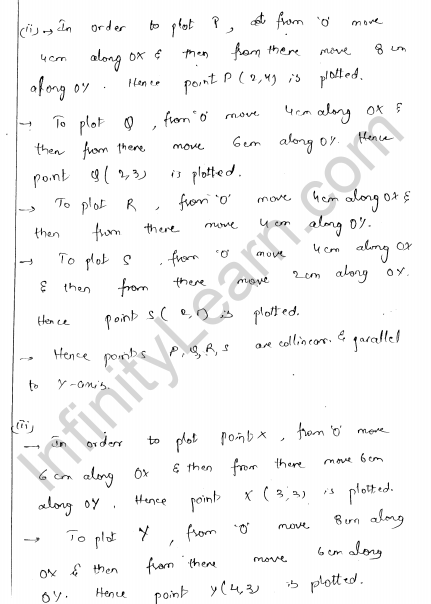 (ii) → In order to plot P, from 'O' move
4cm along OX & then from there move 8cm
along OY. Hence point P(2,4) is plotted.
→ To plot Q, from 'O' move 4cm along OX &
then from there move 6cm along OY. Hence
point Q(2,3) is plotted.
→ To plot R, from 'O' move 4cm along OX &
then from there move 4cm along OY.
→ To plot S, from 'O' move 4cm along OX
& then from there move 2cm along OY.
Hence point S(2,1) is plotted.
→ Hence points P,Q,R,S are collinear. & parallel
to Y-axis.
(iii)
→ In order to plot point X, from 'O' move
6cm along OX & then from there move 6cm
along OY. Hence point X(3,3) is plotted.
→ To plot Y, from 'O' move 8cm along
OX & then from there move 6cm along
OY. Hence point Y(4,3) is plotted.
InfinityLearn.com